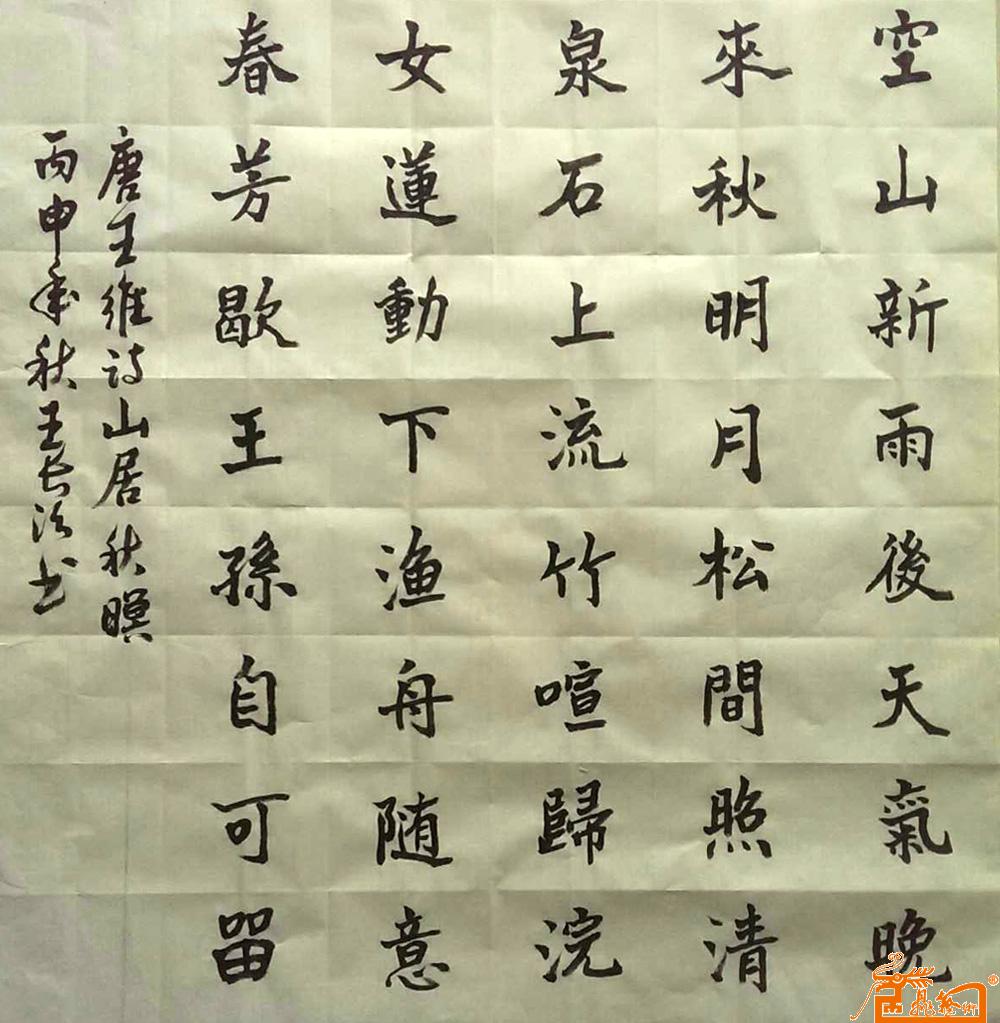 空山新雨後天氣晚
來秋明月松間照清
泉石上流竹喧歸浣
女蓮動下渔舟随意
春芳歇王孫自可留
唐王維诗山居秋暝
丙申年秋王长法书